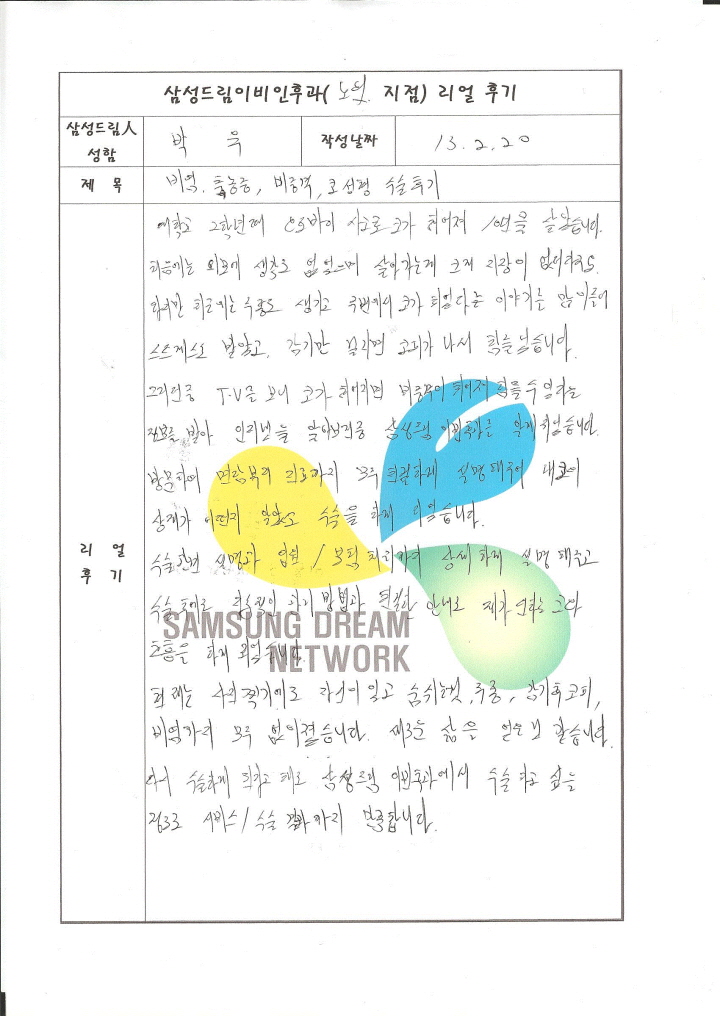 삼성드림이비인후과( 노원 지점) 리얼 후기
삼성드림人 성함
박 욱
작성날짜
13. 2. 20
제 목
비염, 축농증, 비중격, 코성형 수술후기
리 얼 후 기
대학고 2학년때 오토바이 사고로 코가 휘어져 10여년을 살았습니다.
처음에는 외모에 생각도 없었으며 살아가는게 크게 지장이 없더라도
하지만 최근에는 두통도 생기고 주변에서 코가 휘었다는 이야기를 많이들어
스트레스도 받았고, 감기만 걸리면 코피가 나서 힘들었습니다.
그러던중 T.V를 보니 코가 휘어지면 비중격이 휘어져 힘들수있다는
정보를 받아 인터넷을 알아보던중 삼성드림 이비인후과를 알게되었습니다.
방문하여 면담부터 진료까지 모두 친절하게 설명해주어 내코의
상태가 어떤지 알았고 수술을 하게 되었습니다.
수술전엔 설명과 입원 / 부작 까지 상세 하게 설명 해주고
수술 후에도 관리 방법과 친절한 안내로 제가 원하는 코와
호흡을 하게 되었습니다.
현재는 사진찍기에도 자신이 있고 숨쉬는것, 두통, 감기후코피,
비염까지 모두 없어졌습니다. 새로운 삶을 얻은것 같습니다.
다시 수술하게 된다고 해도 삼성드림 이비인후과에서 수술하고 싶은
정도로 서비스/수술 결과까지 만족합니다.
SAMSUNG DREAM
NETWORK